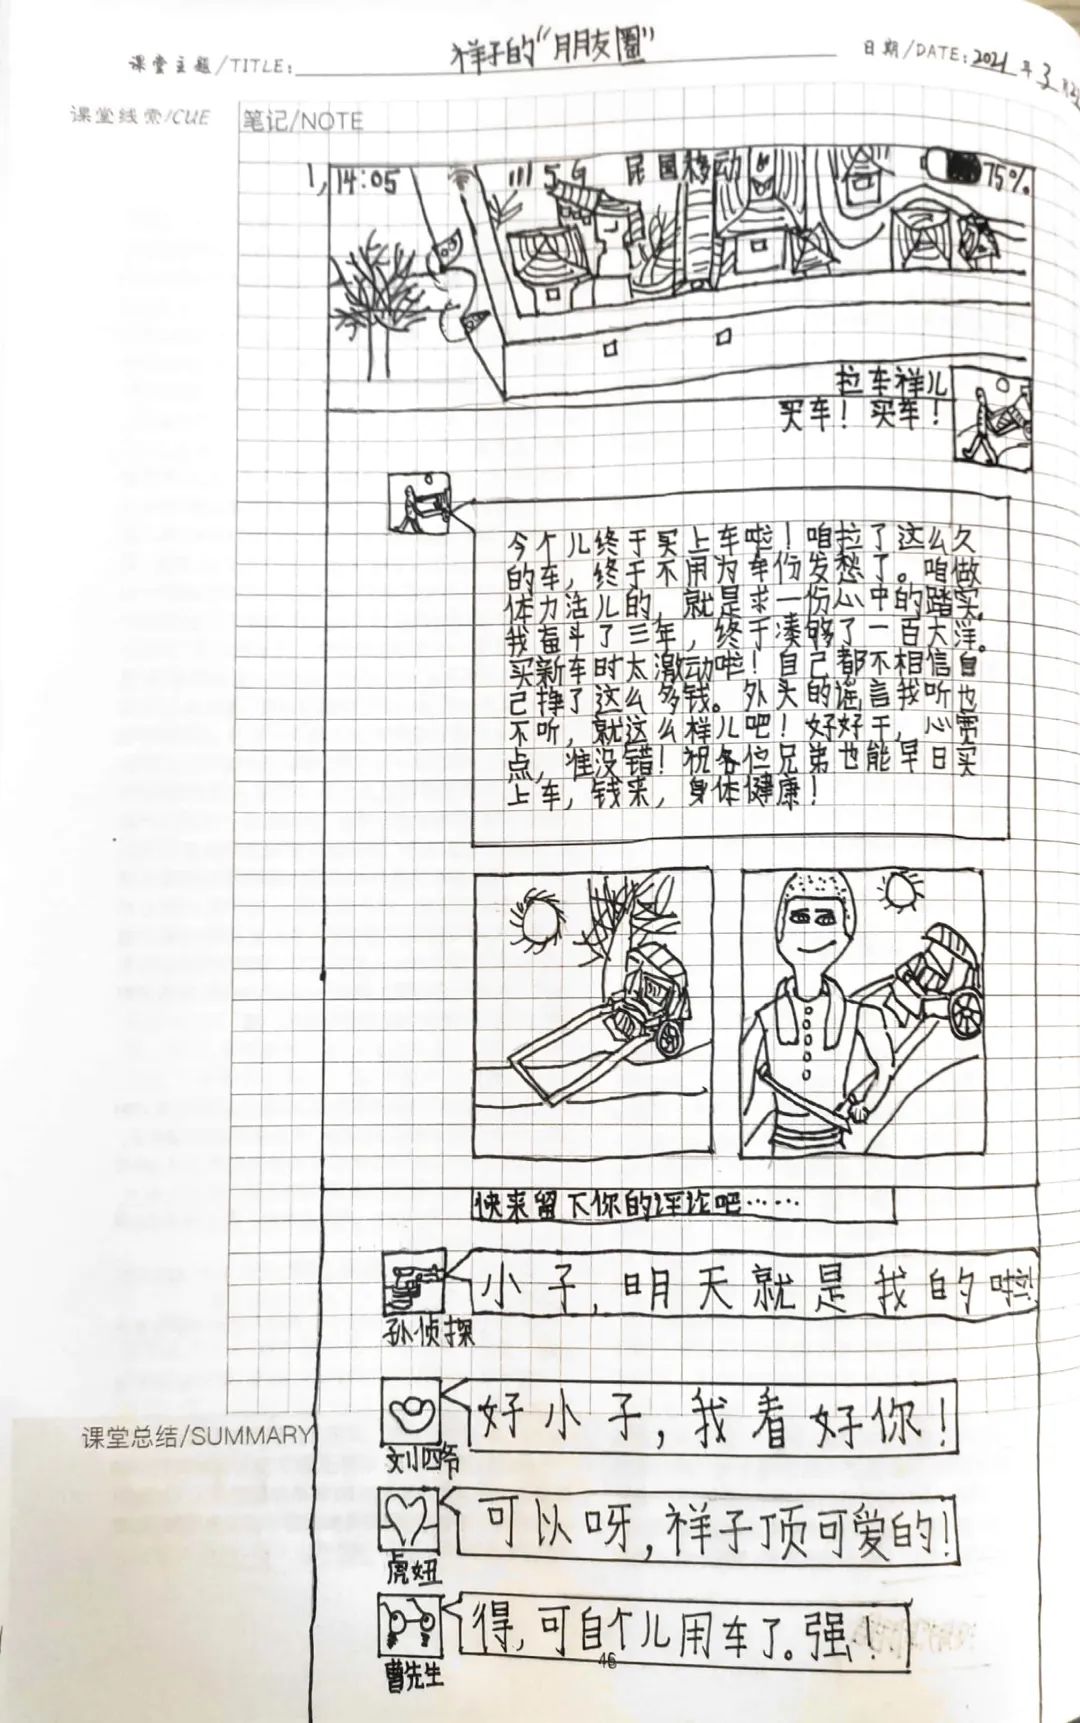 祥子的“朋友圈”
课堂主题/TITLE:
日期/DATE: 2021年3月2
课堂线索/CUE
笔记/NOTE
1, 14:05 5G 民国移动 75%
拉车祥儿
买车！买车！
今个儿终于买上车啦！咱拉了这么久
的车，终于不用为车份发愁了。咱做
体力活儿的，就是求一份心中的踏实
我奋斗了三年，终于凑够了一百大洋。
买新车时太激动啦！自己都不相信自
己挣了这么多钱。外头的谣言我听也
不听，就这么样儿吧！好好干，心宽
点，准没错！祝各位兄弟也能早日买
上车，钱来，身体健康！
快来留下你的评论吧……
小子，明天就是我的啦
孙侦探
好小子，我看好你！
刘四爷
课堂总结/SUMMARY
可以呀，祥子顶可爱的！
虎妞
得，可自个儿用车了。强！
曹先生
46